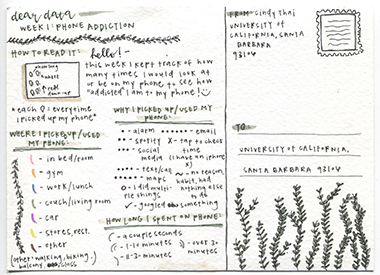 dear data
WEEK 1: PHONE ADDICTION
HOW TO READ IT:
hello! -
this week I kept track of how
many times I would look at
or be on my phone to see how
"addicted" I am to my phone!
*each = everytime
I picked up my phone*
WHERE I PICKED UP/USED
MY PHONE:
- in bed/room
- gym
- work/lunch
- couch/living room
- car
- stores, rest.
- other
(other: walking, hiking,
balcony, class)
WHY I PICKED UP/USED MY
PHONE:
- alarm
- email
- spotify
X - tap to check
time
- social
media
(I have an iphone
X)
- text/call
- maps
~ - no reason,
habit, had
nothing else
to do
- did multi-
ple things
- googled something
HOW LONG I SPENT ON PHONE:
( - a couple seconds
- 1-10 minutes
- over 30
minutes
FROM: Cindy Thai
UNIVERSITY OF
CALIFORNIA, SANTA
BARBARA
93106
TO:
UNIVERSITY OF CALIFORNIA,
SANTA BARBARA 93106